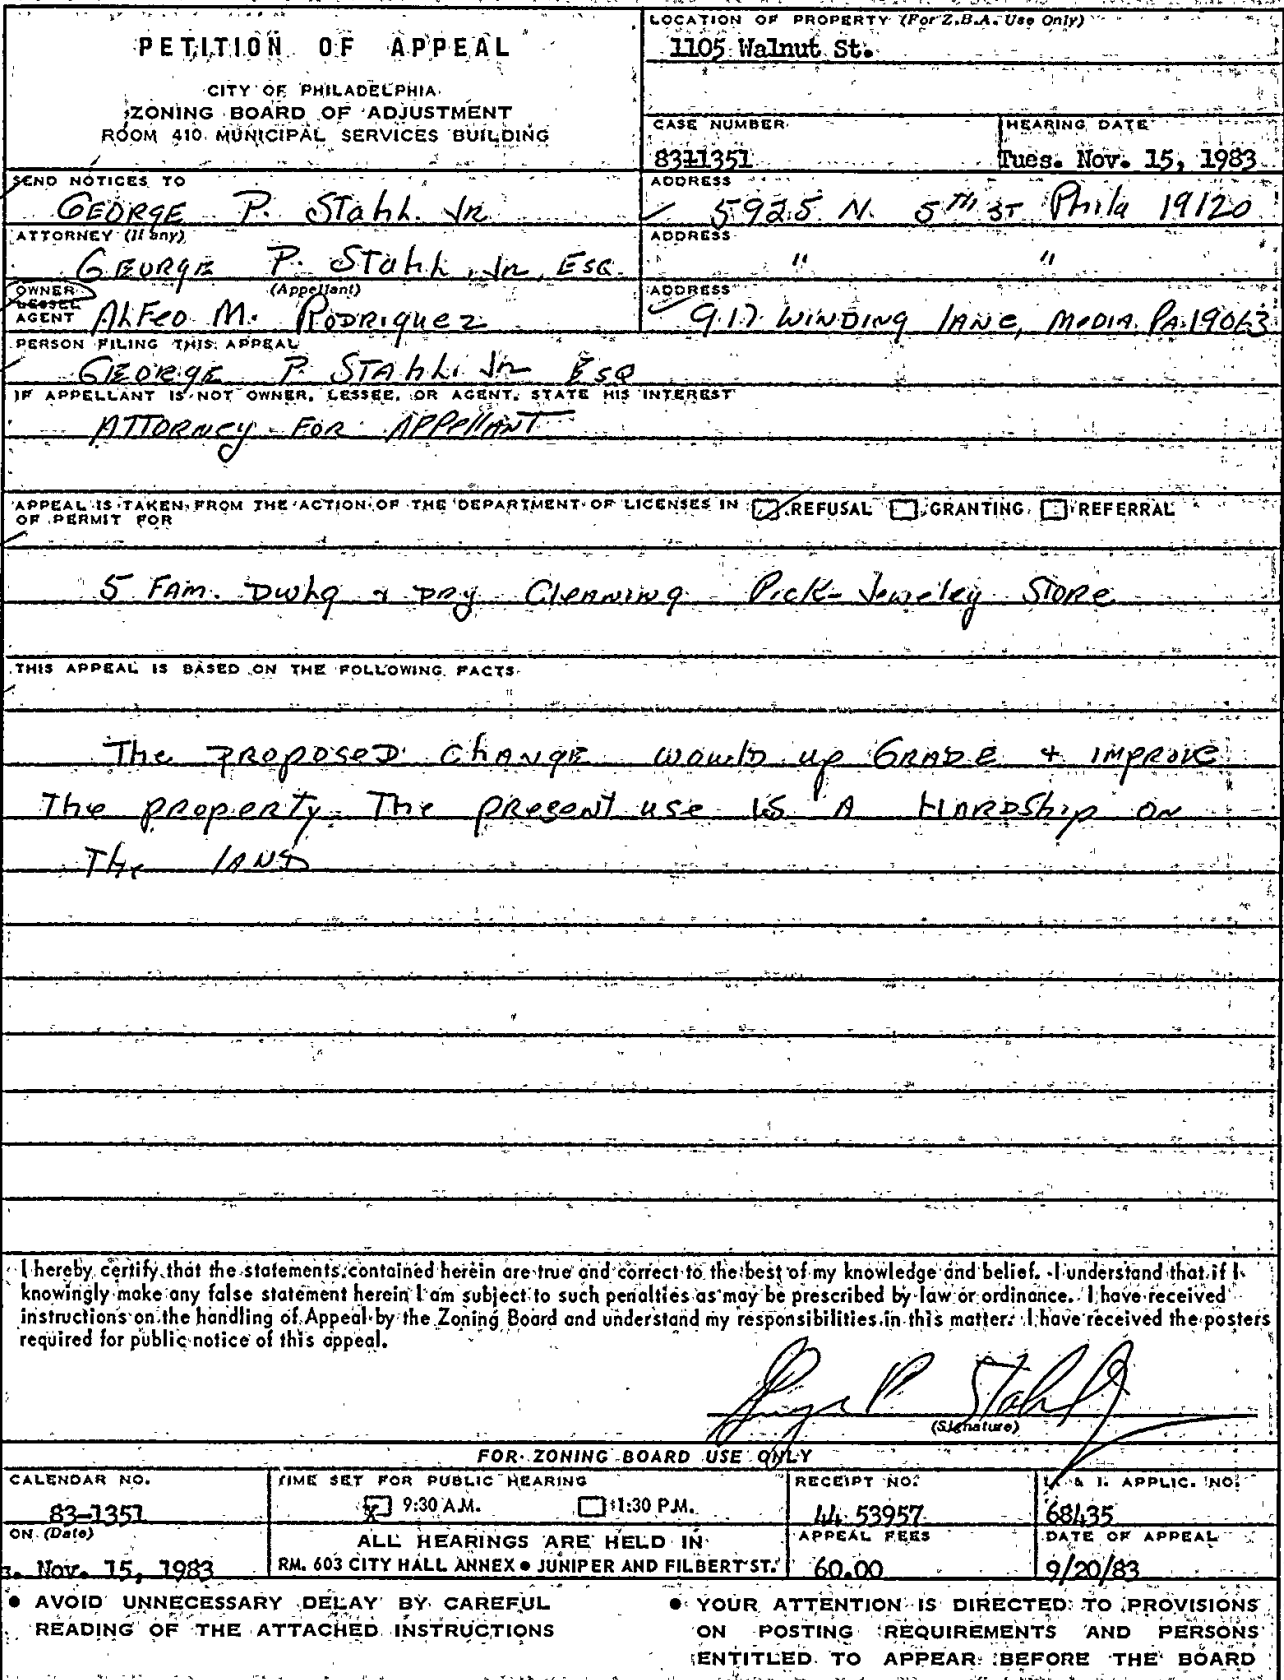 PETITION OF APPEAL
CITY OF PHILADELPHIA
ZONING BOARD OF ADJUSTMENT
ROOM 410 MUNICIPAL SERVICES BUILDING
LOCATION OF PROPERTY (For Z.B.A. Use Only)
1105 Walnut St.
CASE NUMBER
83-1351
HEARING DATE
Tues. Nov. 15, 1983
SEND NOTICES TO
GEORGE P. Stahl Jr
ADDRESS
5925 N. 5TH ST Phila 19120
ATTORNEY (If any)
GEORGE P. Stahl, Jr, Esq.
ADDRESS
" "
OWNER
LESSEE
AGENT
(Appellant)
Alfeo M. Rodriquez
ADDRESS
917 WINDING LANE, MEDIA, PA. 19063
PERSON FILING THIS APPEAL
GEORGE P. STAHL. Jr Esq
IF APPELLANT IS NOT OWNER, LESSEE, OR AGENT, STATE HIS INTEREST
ATTORNEY FOR APPELLANT
APPEAL IS TAKEN FROM THE ACTION OF THE DEPARTMENT OF LICENSES IN REFUSAL GRANTING REFERRAL
OF PERMIT FOR
5 FAM. Dwlg + DRY Cleaning Pick- Jeweley STORE
THIS APPEAL IS BASED ON THE FOLLOWING FACTS
The PROPOSED Change would up GRADE + improve
The property. The present use is A HARDShip on
The LAND
I hereby certify that the statements contained herein are true and correct to the best of my knowledge and belief. I understand that if I
knowingly make any false statement herein I am subject to such penalties as may be prescribed by law or ordinance. I have received
instructions on the handling of Appeal by the Zoning Board and understand my responsibilities in this matter. I have received the posters
required for public notice of this appeal.
George P Stahl Jr
(Signature)
FOR ZONING BOARD USE ONLY
CALENDAR NO.
83-1351
TIME SET FOR PUBLIC HEARING
X 9:30 A.M. 1:30 P.M.
RECEIPT NO.
44 53957
L. & I. APPLIC. NO.
68435
ON (Date)
. Nov. 15, 1983
ALL HEARINGS ARE HELD IN
RM. 603 CITY HALL ANNEX • JUNIPER AND FILBERT ST.
APPEAL FEES
60.00
DATE OF APPEAL
9/20/83
• AVOID UNNECESSARY DELAY BY CAREFUL
READING OF THE ATTACHED INSTRUCTIONS
• YOUR ATTENTION IS DIRECTED TO PROVISIONS
ON POSTING REQUIREMENTS AND PERSONS
ENTITLED TO APPEAR BEFORE THE BOARD